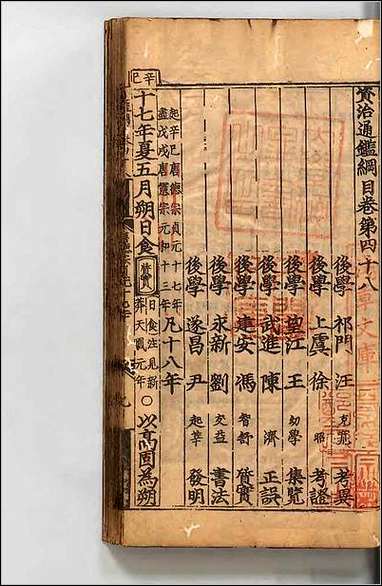 資治通鑑綱目卷第四十八
後學 祁門 汪 克寬 考異
後學 上虞 徐 昭 考證
後學 望江 王 幼學 集覽
後學 武進 陳 濟 正誤
後學 建安 馮 智舒 質實
後學 永新 劉 友益 書法
後學 遂昌 尹 起莘 發明
起辛巳唐德宗貞元十七年
盡戊戌唐憲宗元和十三年
凡十八年
辛巳
十七年夏五月朔日食
質實
日食注見新
莽天鳳元年
○以高固為朔